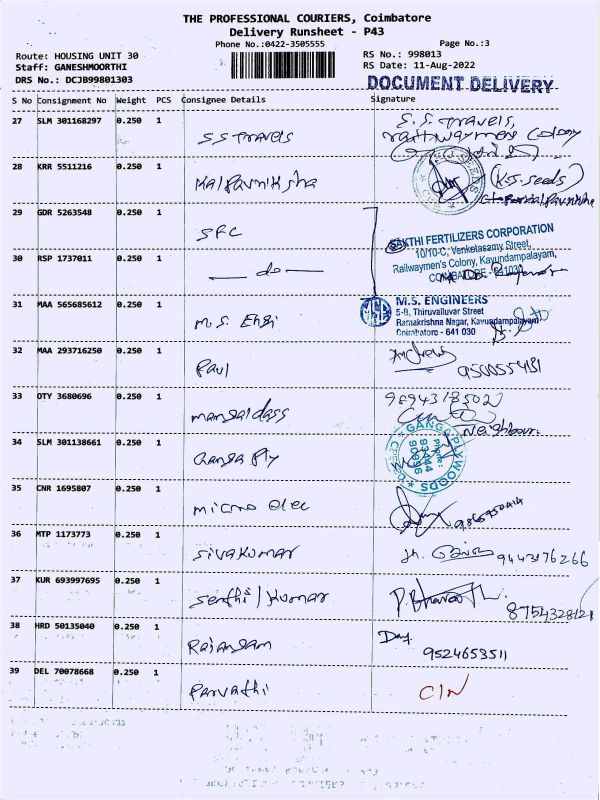 THE PROFESSIONAL COURIERS, Coimbatore
Delivery Runsheet - P43
Phone No.:0422-3505555
Page No.:3
Route: HOUSING UNIT 30
RS No.: 998013
Staff: GANESHMOORTHI
RS Date: 11-Aug-2022
DRS No.: DCJB99801303
DOCUMENT DELIVERY
S No Consignment No Weight PCS Consignee Details Signature
27 SLM 301168297 0.250 1 S S Travels S.S. Travels,
Colony
28 KRR 5511216 0.250 1 Kalpavriksha (K.S. Seeds)
29 GDR 5263548 0.250 1 SFC
SAKTHI FERTILIZERS CORPORATION
10/10-C, Venketasamy Street,
Railwaymen's Colony, Kavundampalayam,
COIMBATORE - 641030
30 RSP 1737011 0.250 1 — do —
31 MAA 565685612 0.250 1 M.S. Engi
M.S. ENGINEERS
5-B, Thiruvalluvar Street
Ramakrishna Nagar, Kavundampalayam
Coimbatore - 641 030
32 MAA 293716250 0.250 1 Paul
33 OTY 3680696 0.250 1 Mangaldass
Neighbour.
34 SLM 301138661 0.250 1 Ganga Ply
GANGA PLYWOODS
35 CNR 1695807 0.250 1 micro elec
36 MTP 1173773 0.250 1 Sivakumar 9443176266
37 KUR 693997695 0.250 1 Senthil Kumar 8754328121
38 HRD 50135040 0.250 1 9524653511
39 DEL 70078668 0.250 1 Parvathi